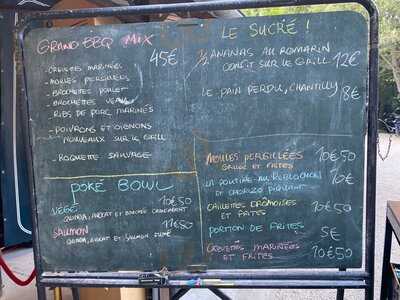 GRAND BBQ MIX
45€
- CREVETTES MARINÉES
- MOULES PERSILLÉES
- BROCHETTES POULET
- BROCHETTES VEAU
RIBS DE PORC MARINÉS
- POIVRONS ET OIGNONS
NOUVEAUX SUR LE GRILL
- ROQUETTE SAUVAGE
POKÉ BOWL
VÉGÉ 10€50
QUINOA, AVOCAT ET
SALMON 11€50
QUINOA, AVOCAT ET SALMON FUMÉ
LE SUCRÉ !
ANANAS AU ROMARIN
CONFIT SUR LE GRILL 12€
LE PAIN PERDU, CHANTILLY 8€
MOULES PERSILLÉES 10€50
ET FRITES
LA POUTINE AU REBLOCHON 10€
ET CHORIZO PIQUANT
CAILLETTES CRÉMOISES 10€50
ET FRITES
PORTION DE FRITES 5€
CREVETTES MARINÉES
ET FRITES 10€50